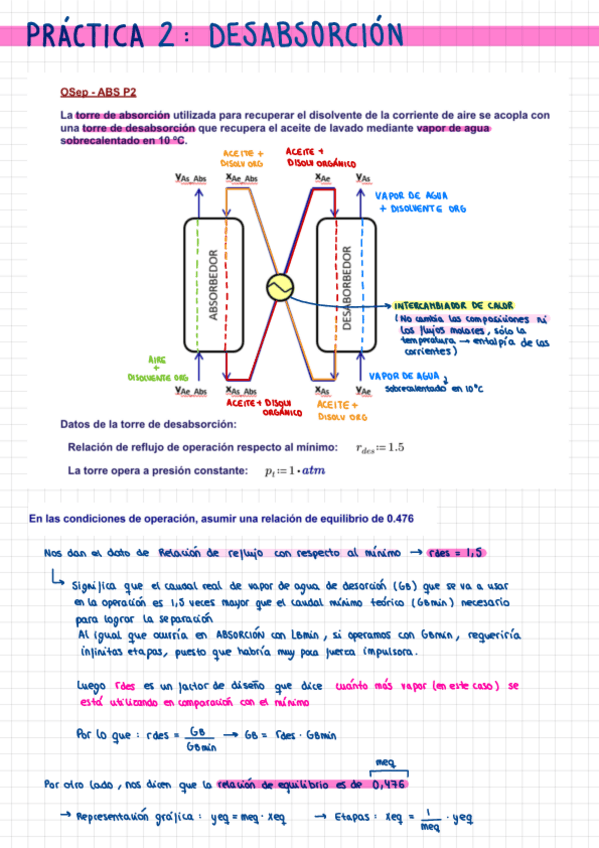 PRÁCTICA 2: DESABSORCIÓN
OSep - ABS P2
La torre de absorción utilizada para recuperar el disolvente de la corriente de aire se acopla con
una torre de desabsorción que recupera el aceite de lavado mediante vapor de agua
sobrecalentado en 10 ºC.
ACEITE +
DISOLV ORG
ACEITE +
DISOLV ORGÁNICO
yAs_Abs
xAe_Abs
xAe
yAs
VAPOR DE AGUA
+ DISOLVENTE ORG
ABSORBEDOR
DESABORBEDOR
INTERCAMBIADOR DE CALOR
(No cambia las composiciones ni
los flujos molares, sólo la
temperatura → entalpía de las
corrientes)
AIRE
+
DISOLVENTE ORG
VAPOR DE AGUA
sobrecalentado en 10°C
yAe_Abs
xAs_Abs
xAs
yAe
ACEITE + DISOLV
ORGÁNICO
ACEITE +
DISOLV ORG
Datos de la torre de desabsorción:
Relación de reflujo de operación respecto al mínimo: r_des := 1.5
La torre opera a presión constante: p_t := 1 • atm
En las condiciones de operación, asumir una relación de equilibrio de 0.476
Nos dan el dato de Relación de reflujo con respecto al mínimo → rdes = 1,5
↳ Significa que el caudal real de vapor de agua de desorción (GB) que se va a usar
en la operación es 1,5 veces mayor que el caudal mínimo teórico (GBmin) necesario
para lograr la separación
Al igual que ocurría en ABSORCIÓN con LBmin, si operamos con GBmin, requeriría
infinitas etapas, puesto que habría muy poca fuerza impulsora.
Luego rdes es un factor de diseño que dice cuánto más vapor (en este caso) se
está utilizando en comparación con el mínimo
Por lo que: rdes = GB / GBmin → GB = rdes · GBmin
meq
Por otro lado, nos dicen que la relación de equilibrio es de 0,476
→ Representación gráfica: yeq = meq · xeq → Etapas: xeq = 1 / meq · yeq